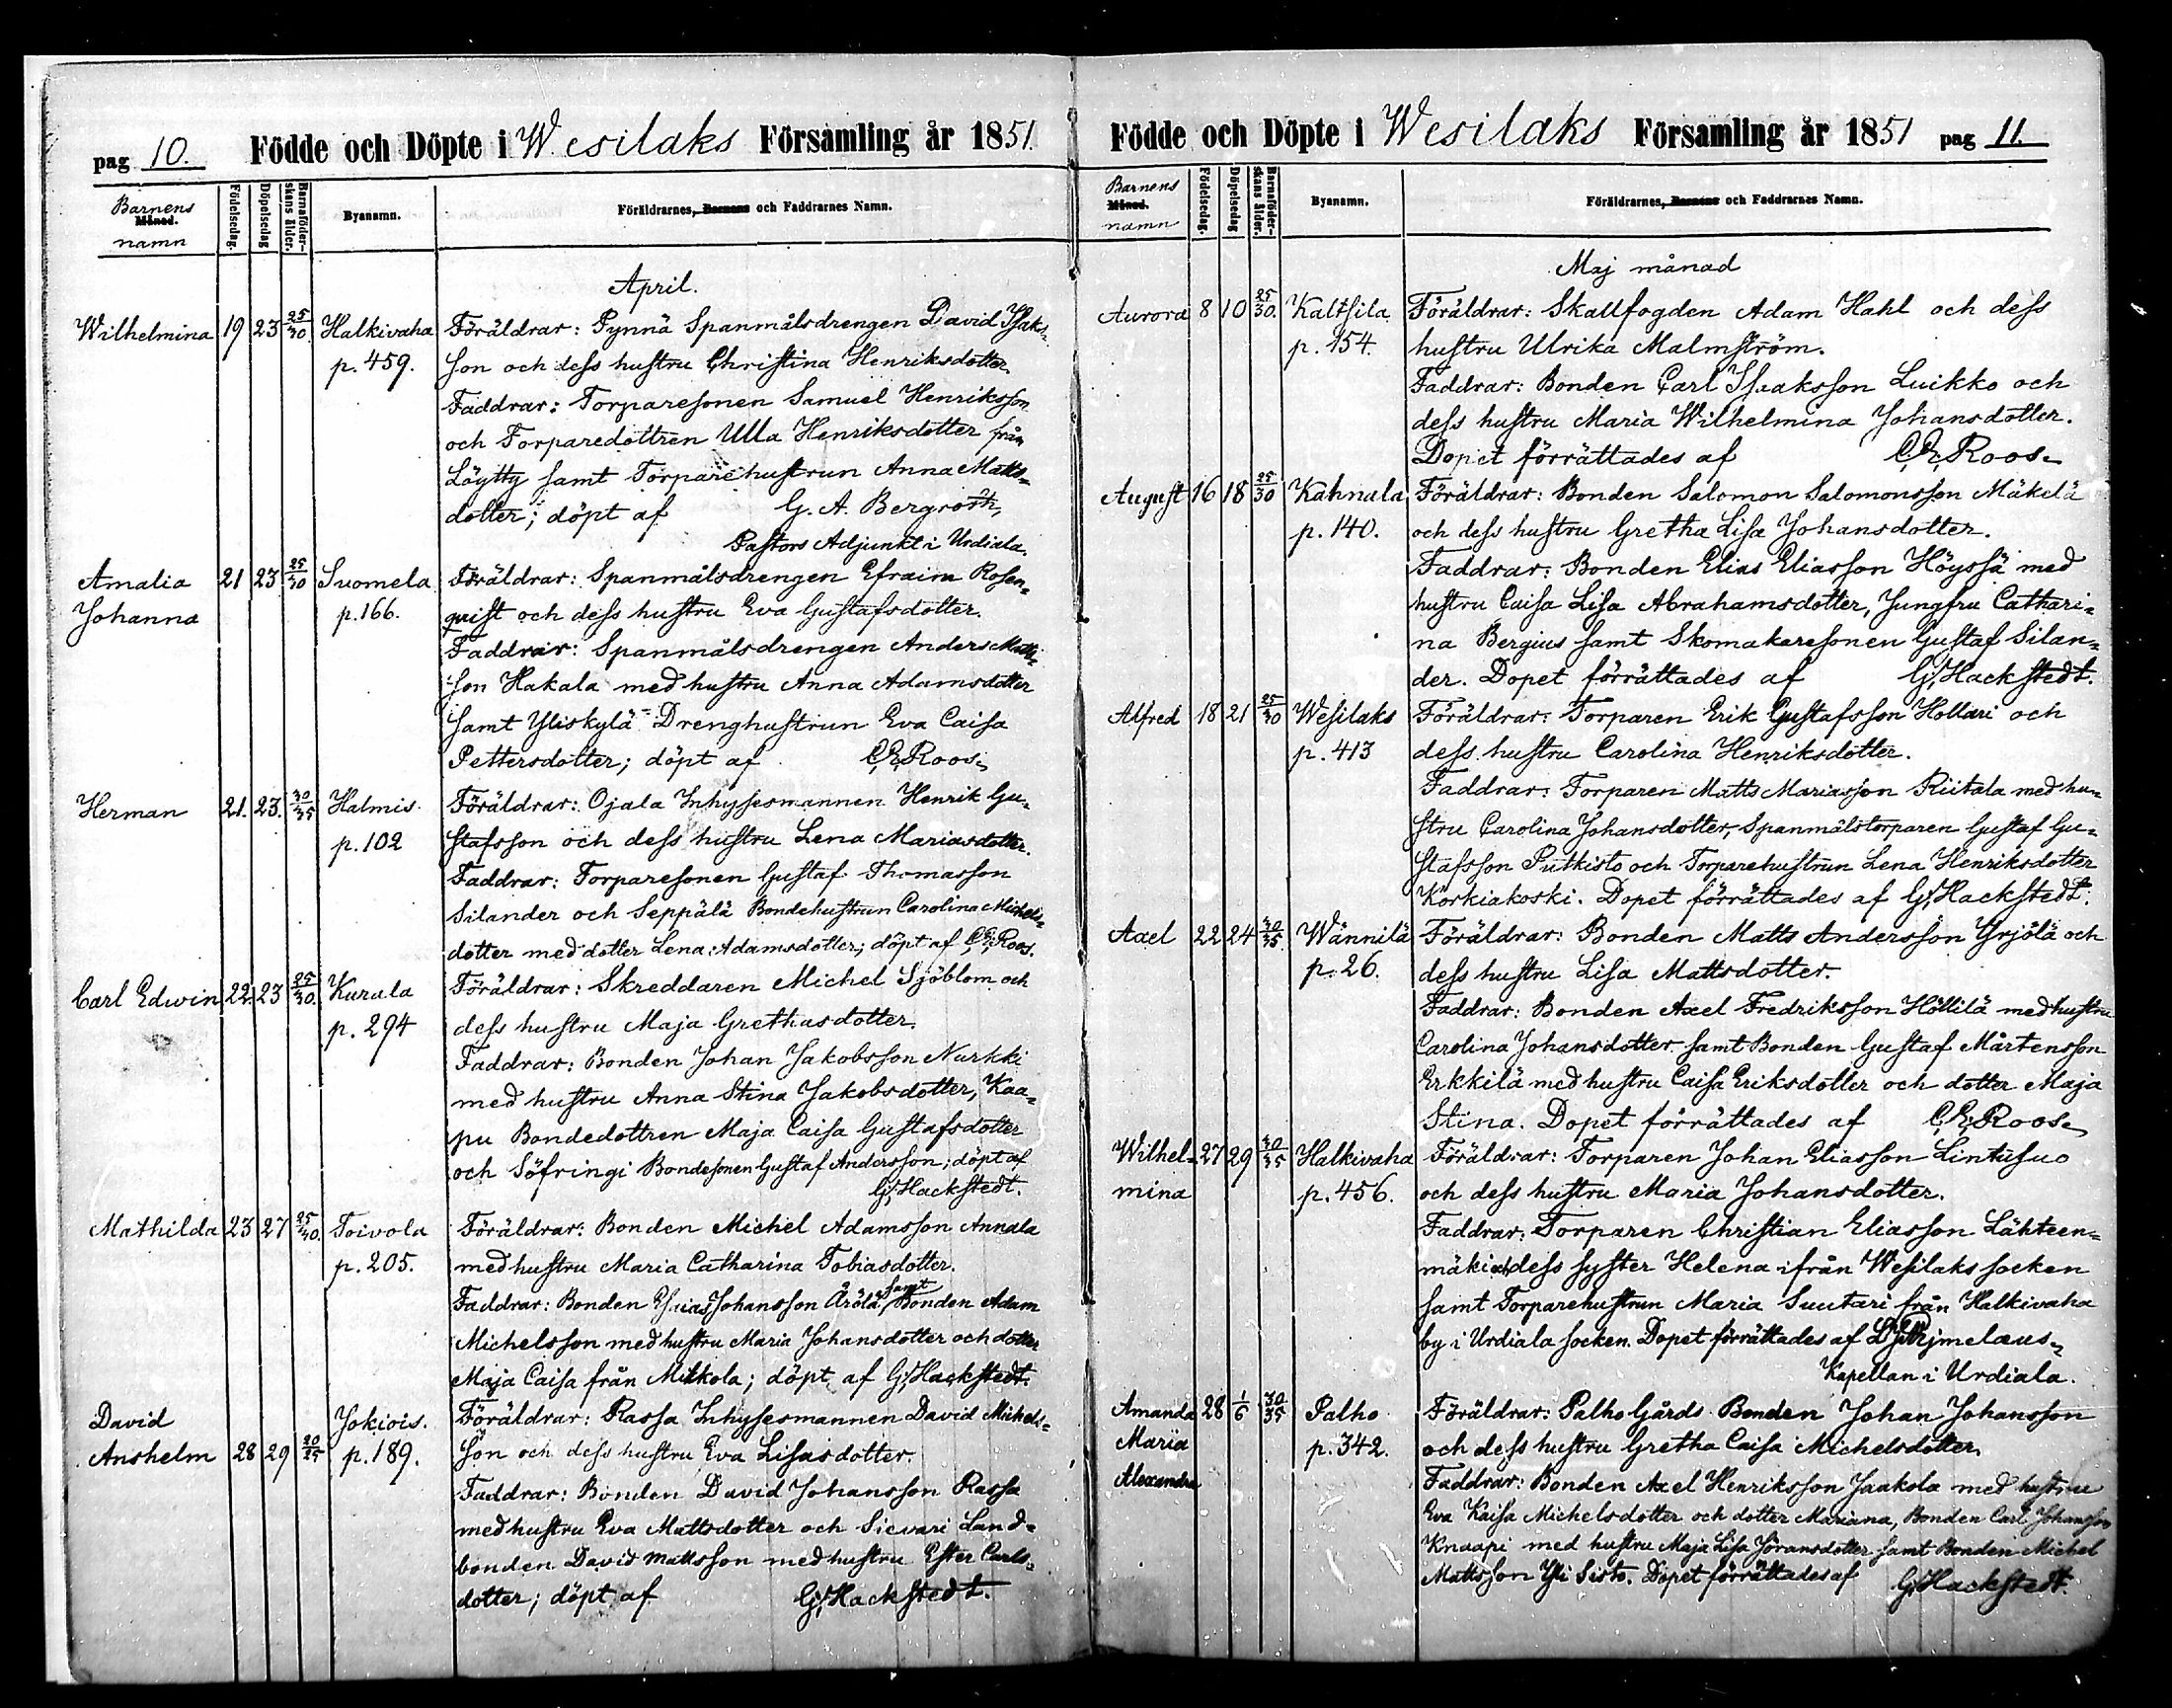 pag 10. Födde och Döpte i Wesilaks Församling år 1851.
Barnens Månad. namn
Födelsedag.
Döpelsedag
Barnaföder-
skans ålder.
Byanamn.
Föräldrarnes, Barnens och Faddrarnes Namn.
April.
Wilhelmina 19 23 25/30 Halkivaha Föräldrar: Pynnä Spanmålsdrengen David Isaks-
p. 459. son och dess hustru Christina Henriksdotter.
Faddrar: Torparesonen Samuel Henriksson
och Torparedottren Ulla Henriksdotter från
Löytty samt Torparehustrun Anna Matts-
dotter; döpt af G. A. Bergroth,
Pastors Adjunkt i Urdiala.
Amalia 21 23 25/30 Suomela Föräldrar: Spanmålsdrengen Efraim Rosen-
Johanna p. 166. quist och dess hustru Eva Gustafsdotter.
Faddrar: Spanmålsdrengen Anders Matts-
son Hakala med hustru Anna Adamsdotter
samt Yliskylä Drenghustrun Eva Caisa
Pettersdotter; döpt af C. E. Roos.
Herman 21. 23. 30/35 Halmis. Föräldrar: Ojala Inhysesmannen Henrik Gu-
p. 102 stafsson och dess hustru Lena Mariasdotter.
Faddrar: Torparesonen Gustaf Thomasson
Silander och Seppälä Bondehustrun Carolina Michels-
dotter med dotter Lena Adamsdotter; döpt af C. E. Roos.
Carl Edwin 22 23 25/30. Kurala Föräldrar: Skreddaren Michel Sjöblom och
p. 294 dess hustru Maja Grethasdotter.
Faddrar: Bonden Johan Jakobsson Nurkki
med hustru Anna Stina Jakobsdotter, Kaa-
pu Bondedottren Maja Caisa Gustafsdotter
och Söfringi Bondesonen Gustaf Andersson; döpt af
G. Hackstedt.
Mathilda 23 27 Toivola Föräldrar: Bonden Michel Adamsson Annala
p. 205. med hustru Maria Catharina Tobiasdotter.
Faddrar: Bonden Esaias Johansson Ärölä, samt Bonden Adam
Michelsson med hustru Maria Johansdotter och dotter
Maja Caisa från Mikkola; döpt af G. Hackstedt.
David Jokiois. Föräldrar: Rassa Inhysesmannen David Michels-
Anshelm 28 29 20/25 p. 189. son och dess hustru Eva Lisasdotter.
Faddrar: Bonden David Johansson Rassa
med hustru Eva Mattsdotter och Sievari Land-
bonden David Mattsson med hustru Ester Carls-
dotter; döpt af G. Hackstedt.
Födde och Döpte i Wesilaks Församling år 1851 pag 11.
Barnens Månad. namn
Födelsedag.
Döpelsedag
Barnaföder-
skans ålder.
Byanamn.
Föräldrarnes, Barnens och Faddrarnes Namn.
Maj månad
Aurora 8 10 25/30. Kaltsila Föräldrar: Skallfogden Adam Hahl och dess
p. 154. hustru Ulrika Malmström.
Faddrar: Bonden Carl Isaaksson Luikko och
dess hustru Maria Wilhelmina Johansdotter.
Dopet förrättades af C. E. Roos.
August 16 18 25/30 Kahnala Föräldrar: Bonden Salomon Salomonsson Mäkelä
p. 140. och dess hustru Gretha Lisa Johansdotter.
Faddrar: Bonden Elias Eliasson Höyssä med
hustru Caisa Lisa Abrahamsdotter, Jungfru Cathari-
na Bergius samt Skomakaresonen Gustaf Silan-
der. Dopet förrättades af G. Hackstedt.
Alfred 18 21 25/30 Wesilaks Föräldrar: Torparen Erik Gustafsson Hollari och
p. 413 dess hustru Carolina Henriksdotter.
Faddrar: Torparen Matts Mariasson Riitala med hu-
stru Carolina Johansdotter, Spanmålstorparen Gustaf Gu-
stafsson Putkisto och Torparehustrun Lena Henriksdotter
Korkiakoski. Dopet förrättades af G. Hackstedt.
Axel 22 24 30/35. Wännilä Föräldrar: Bonden Matts Andersson Yrjölä och
p. 26. dess hustru Lisa Mattsdotter.
Faddrar: Bonden Axel Fredriksson Höllilä med hustru
Carolina Johansdotter samt Bonden Gustaf Mårtensson
Erkkilä med hustru Caisa Eriksdotter och dotter Maja
Stina. Dopet förrättades af C. E. Roos.
Wilhel- 27 29 30/35 Halkivaha Föräldrar: Torparen Johan Eliasson Lintusuo
mina p. 456. och dess hustru Maria Johansdotter.
Faddrar: Torparen Christian Eliasson Lähteen-
mäki och dess syster Helena ifrån Wesilaks socken
samt Torparehustrun Maria Suutari från Halkivaha
by i Urdiala socken. Dopet förrättades af
Kapellan i Urdiala.
Amanda 28 1/6 30/35 Palho Föräldrar: Palho Gårds Bonden Johan Johansson
Maria p. 342. och dess hustru Gretha Caisa Michelsdotter.
Alexandra Faddrar: Bonden Axel Henriksson Jaakola med hustru
Eva Kaisa Michelsdotter och dotter Mariana, Bonden Carl Johansson
Knaapi med hustru Maja Lisa Göransdotter samt Bonden Michel
Mattsson Yli Sisto. Dopet förrättades af G. Hackstedt.